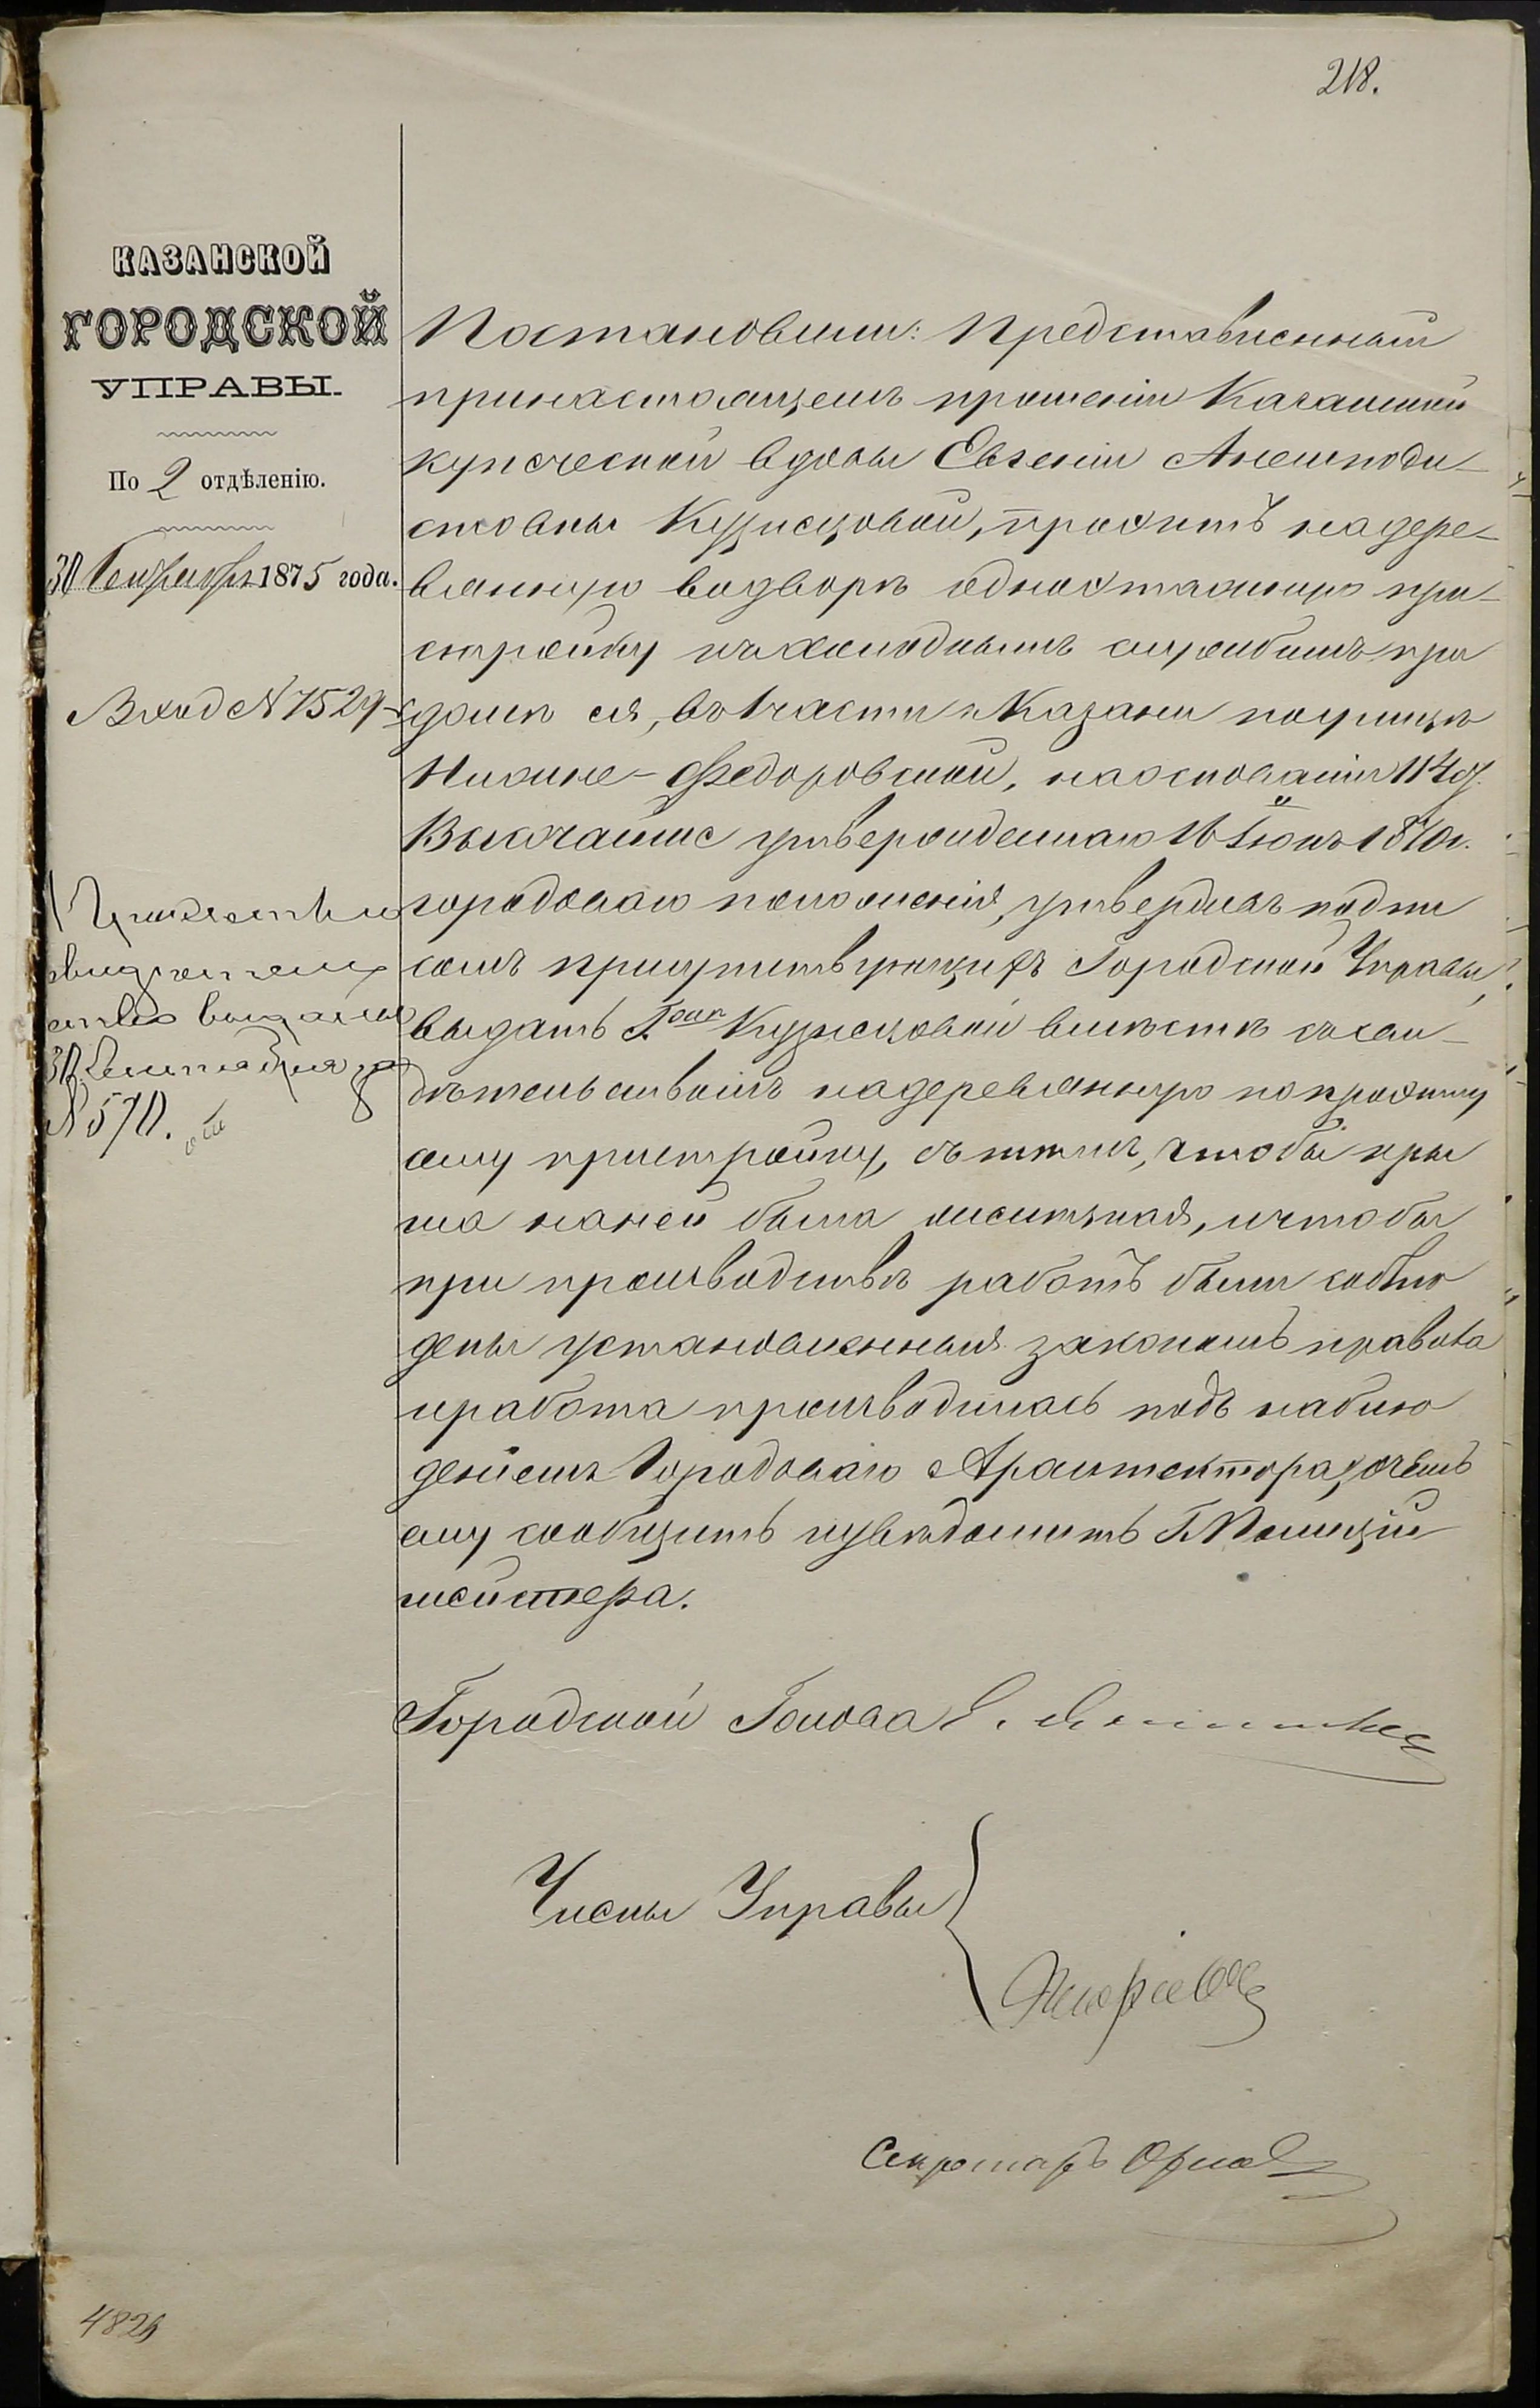 218.
КАЗАНСКОЙ
ГОРОДСКОЙ
УПРАВЫ.
По 2 отдѣленію.
30 Сентября 1875 года.
Вход № 7529
Проэктъ и
свидѣтель
ство выданы
30 Сентября за
№ 570.
Постановили: Представленный
принастоящемъ прошеніи Казанской
купеческой вдовы Евгеніи Анемподи-
стовны Кузнецовой, проэктъ надере-
вянную водворѣ одноэтажную при-
стройку съ холоднымъ службамъ при
домѣ ея, въ 1 части г. Казани поулицѣ
Нижне-Федоровской, наоснованіи 114 §.
Высочайше утвержденнаго 16 Іюня 1870 г.
городоваго положенія, утвердивъ подпи
сомъ присутствующихъ Городской Управы,
выдать Г. Кузнецовой вмѣстѣ съ сви-
дѣтельствомъ надеревянную попроэкту
ому пристройку, съ тѣмъ, чтобы кры
ша наней была желѣзная, ичтобы
при производствѣ работъ были соблю
дены установленныя закономъ правила
иработа производилась подъ наблю
деніемъ Городоваго Архитектора, очемъ
ему сообщить иувѣдомить Г. Полиціи
мейстера.
Городской Голова
Члены Управы
Секретарь Орлов
4829